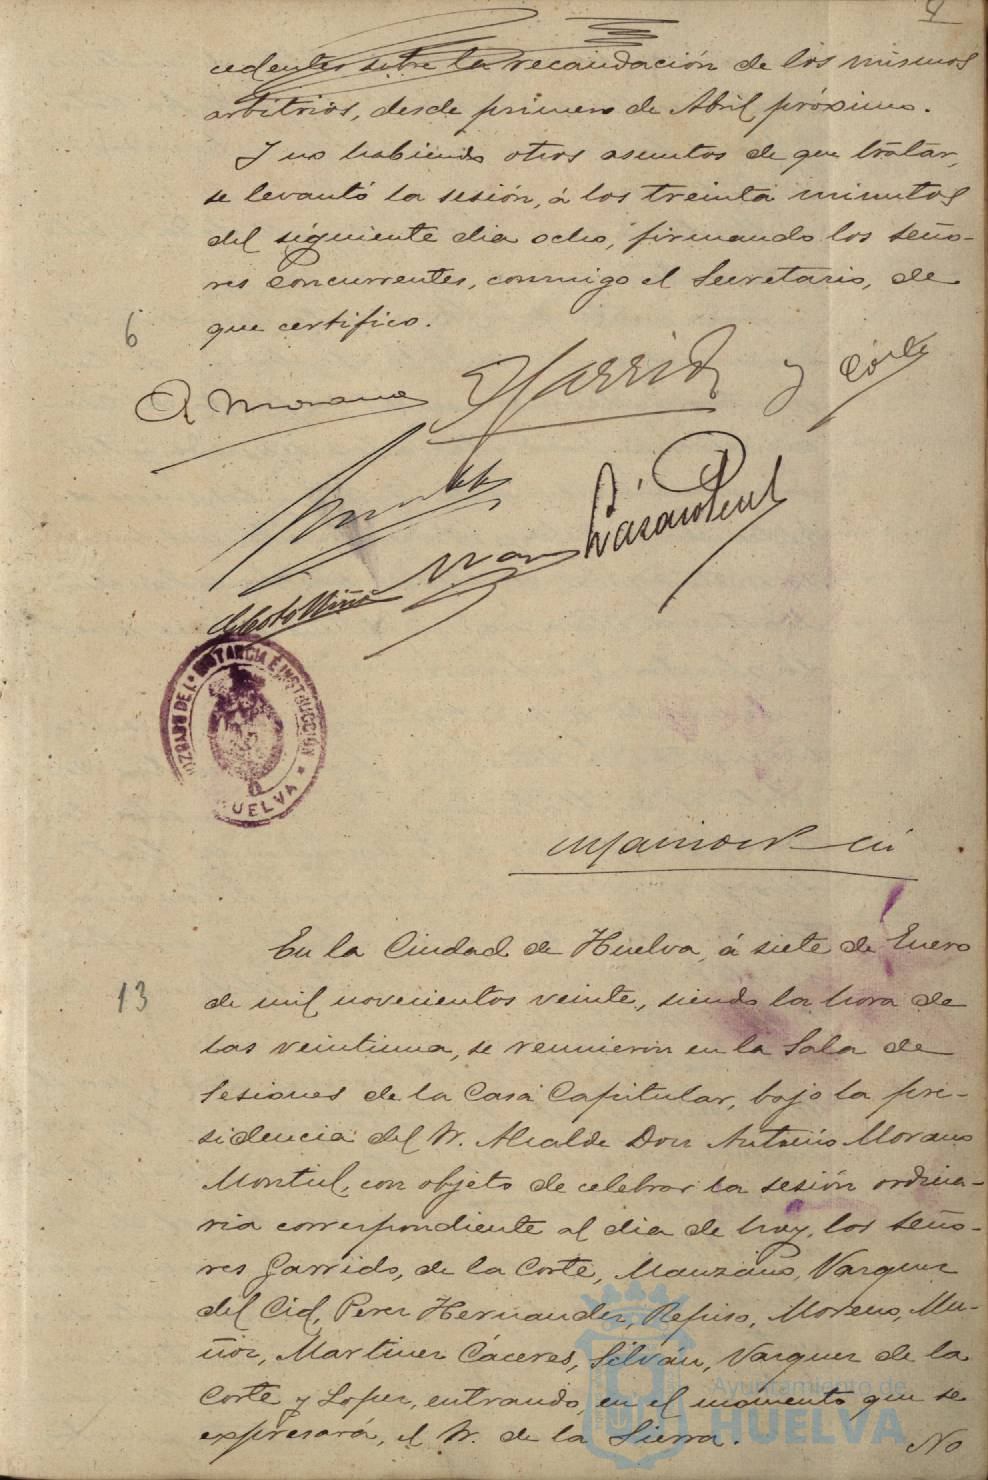 4
cedentes sobre la recaudación de los mismos
arbitrios, desde primero de Abril próximo.
Y no habiendo otros asuntos de que tratar,
se levantó la sesión, á los treinta minutos
del siguiente dia ocho, firmando los seño-
res concurrentes, conmigo el Secretario, de
que certifico.
6
A Morano Garrido y Corte
Lázaro Perez
JUZGADO DE 1ª INSTANCIA É INSTRUCCIÓN
HUELVA
En la Ciudad de Huelva, á siete de Enero
13
de mil novecientos veinte, siendo la hora de
las veintiuna, se reunieron en la Sala de
Sesiones de la Casa Capitular, bajo la pre-
sidencia del Sr. Alcalde Don Antonio Morano
Montiel, con objeto de celebrar la sesión ordina-
ria correspondiente al dia de hoy, los seño-
res Garrido, de la Corte, Manzano, Vazquez
del Cid, Perez Hernandez, Repiso, Moreno, Mu-
ñoz, Martinez Cáceres, Silván, Vazquez de la
Corte y Lopez, entrando en el momento que se
expresará, el Sr. de la Sierra.
No
Ayuntamiento de
HUELVA